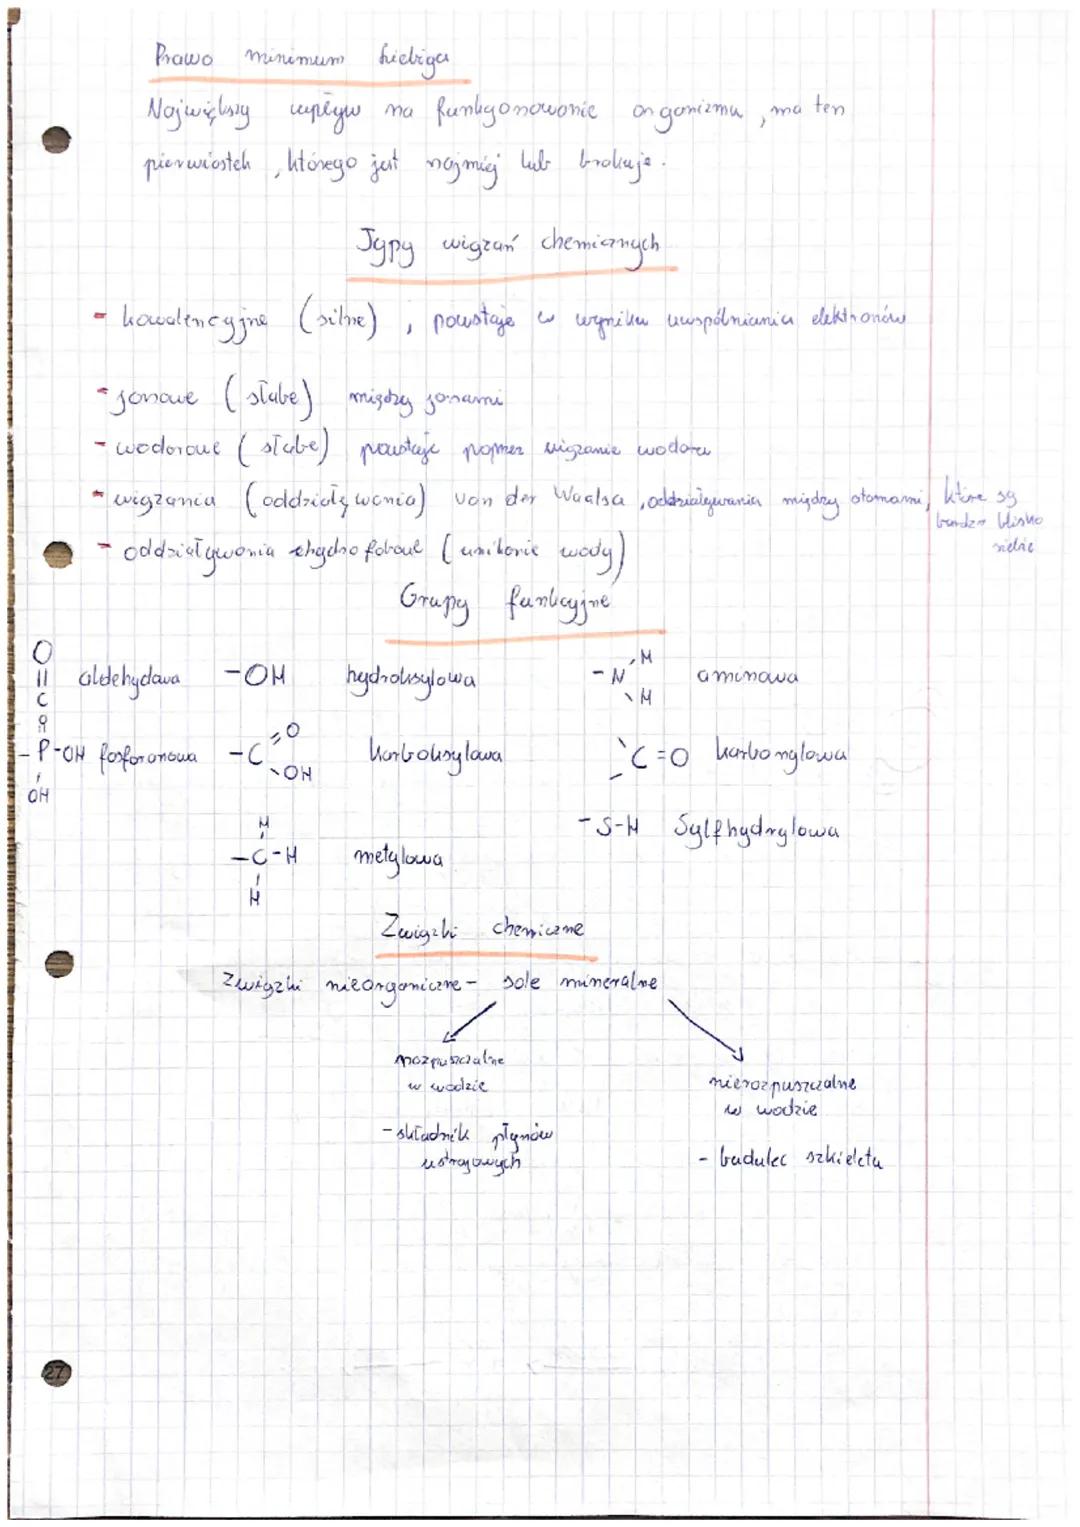 Prawo minimum Liebiga
Największy wpływ na funkcjonowanie organizmu, ma ten
pierwiastek, którego jest najmniej lub brakuje.
Typy wiązań chemicznych
- kowalencyjne (silne), powstaje w wyniku uwspólniania elektronów
- jonowe (słabe) między jonami
- wodorowe (słabe) powstaje poprzez wiązanie wodoru
- wiązania (oddziaływania) van der Waalsa, oddziaływania między atomami, które są
bardzo blisko
siebie
- oddziaływania hydrofobowe (unikanie wody)
Grupy funkcyjne
O
||
C
aldehydowa -OH hydroksylowa -N H H aminowa
O
-P-OH fosforanowa -C =O OH karboksylowa C=O karbonylowa
OH
-S-H Sylfhydrylowa
H
-C-H metylowa
H
Związki chemiczne
Związki nieorganiczne - sole mineralne
rozpuszczalne
w wodzie
- składnik płynów
ustrojowych
nierozpuszczalne
w wodzie
- budulec szkieletu
27